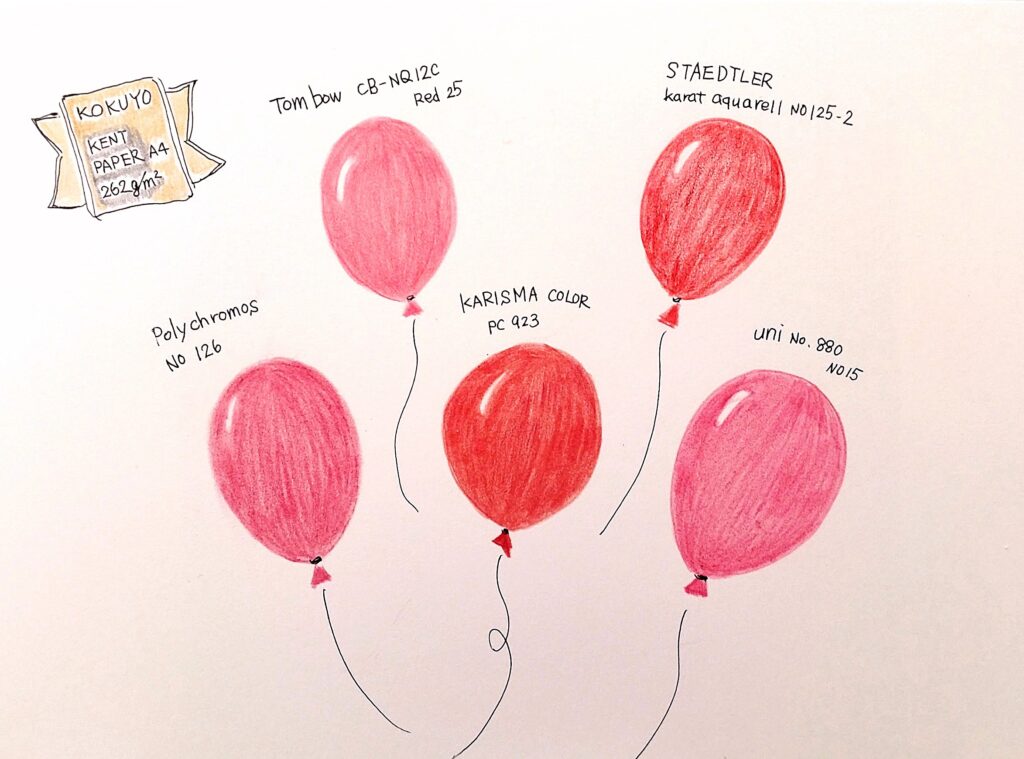 KOKUYO
KENT
PAPER A4
262g/m²
Tombow CB-NQ12C
Red 25
STAEDTLER
karat aquarell NO125-2
Polychromos
NO 126
KARISMA COLOR
PC 923
uni No. 880
NO15